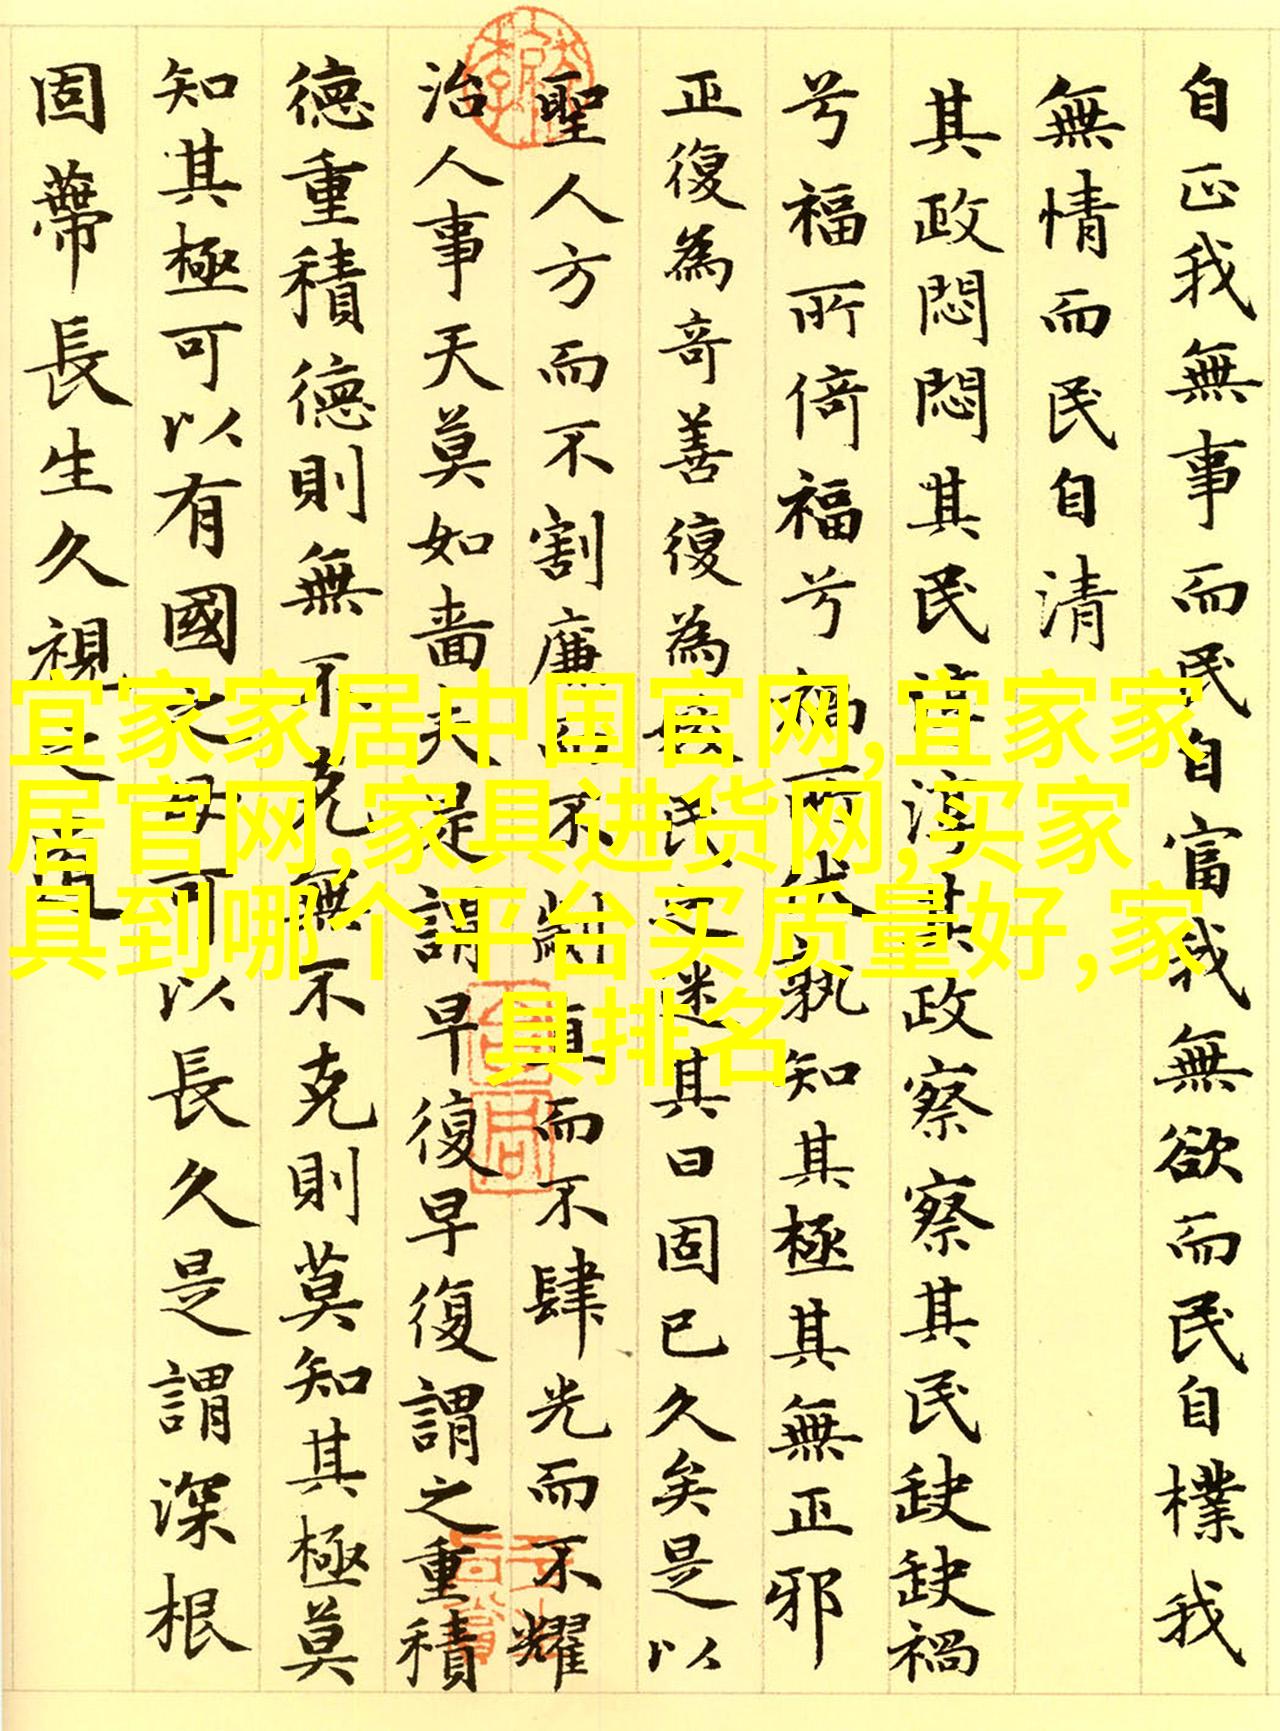 自正我無事而民自富我無欲而民自樸我
無情而民自清
其政悶悶其民淳淳其政察察其民缺缺禍
兮福所倚福兮禍所伏孰知其極其無正邪
正復為奇善復為妖民之迷其日固已久矣是以
聖人方而不割廉而不劌直而不肆光而不耀
治人事天莫如嗇夫是謂早復早復謂之重積
德重積德則無不克無不克則莫知其極莫
知其極可以有國之母可以長久是謂深根
固蔕長生久視之道
宜家家居中国官网,宜家家
居官网,家具进货网,买家
具到哪个平台买质量好,家
具排名